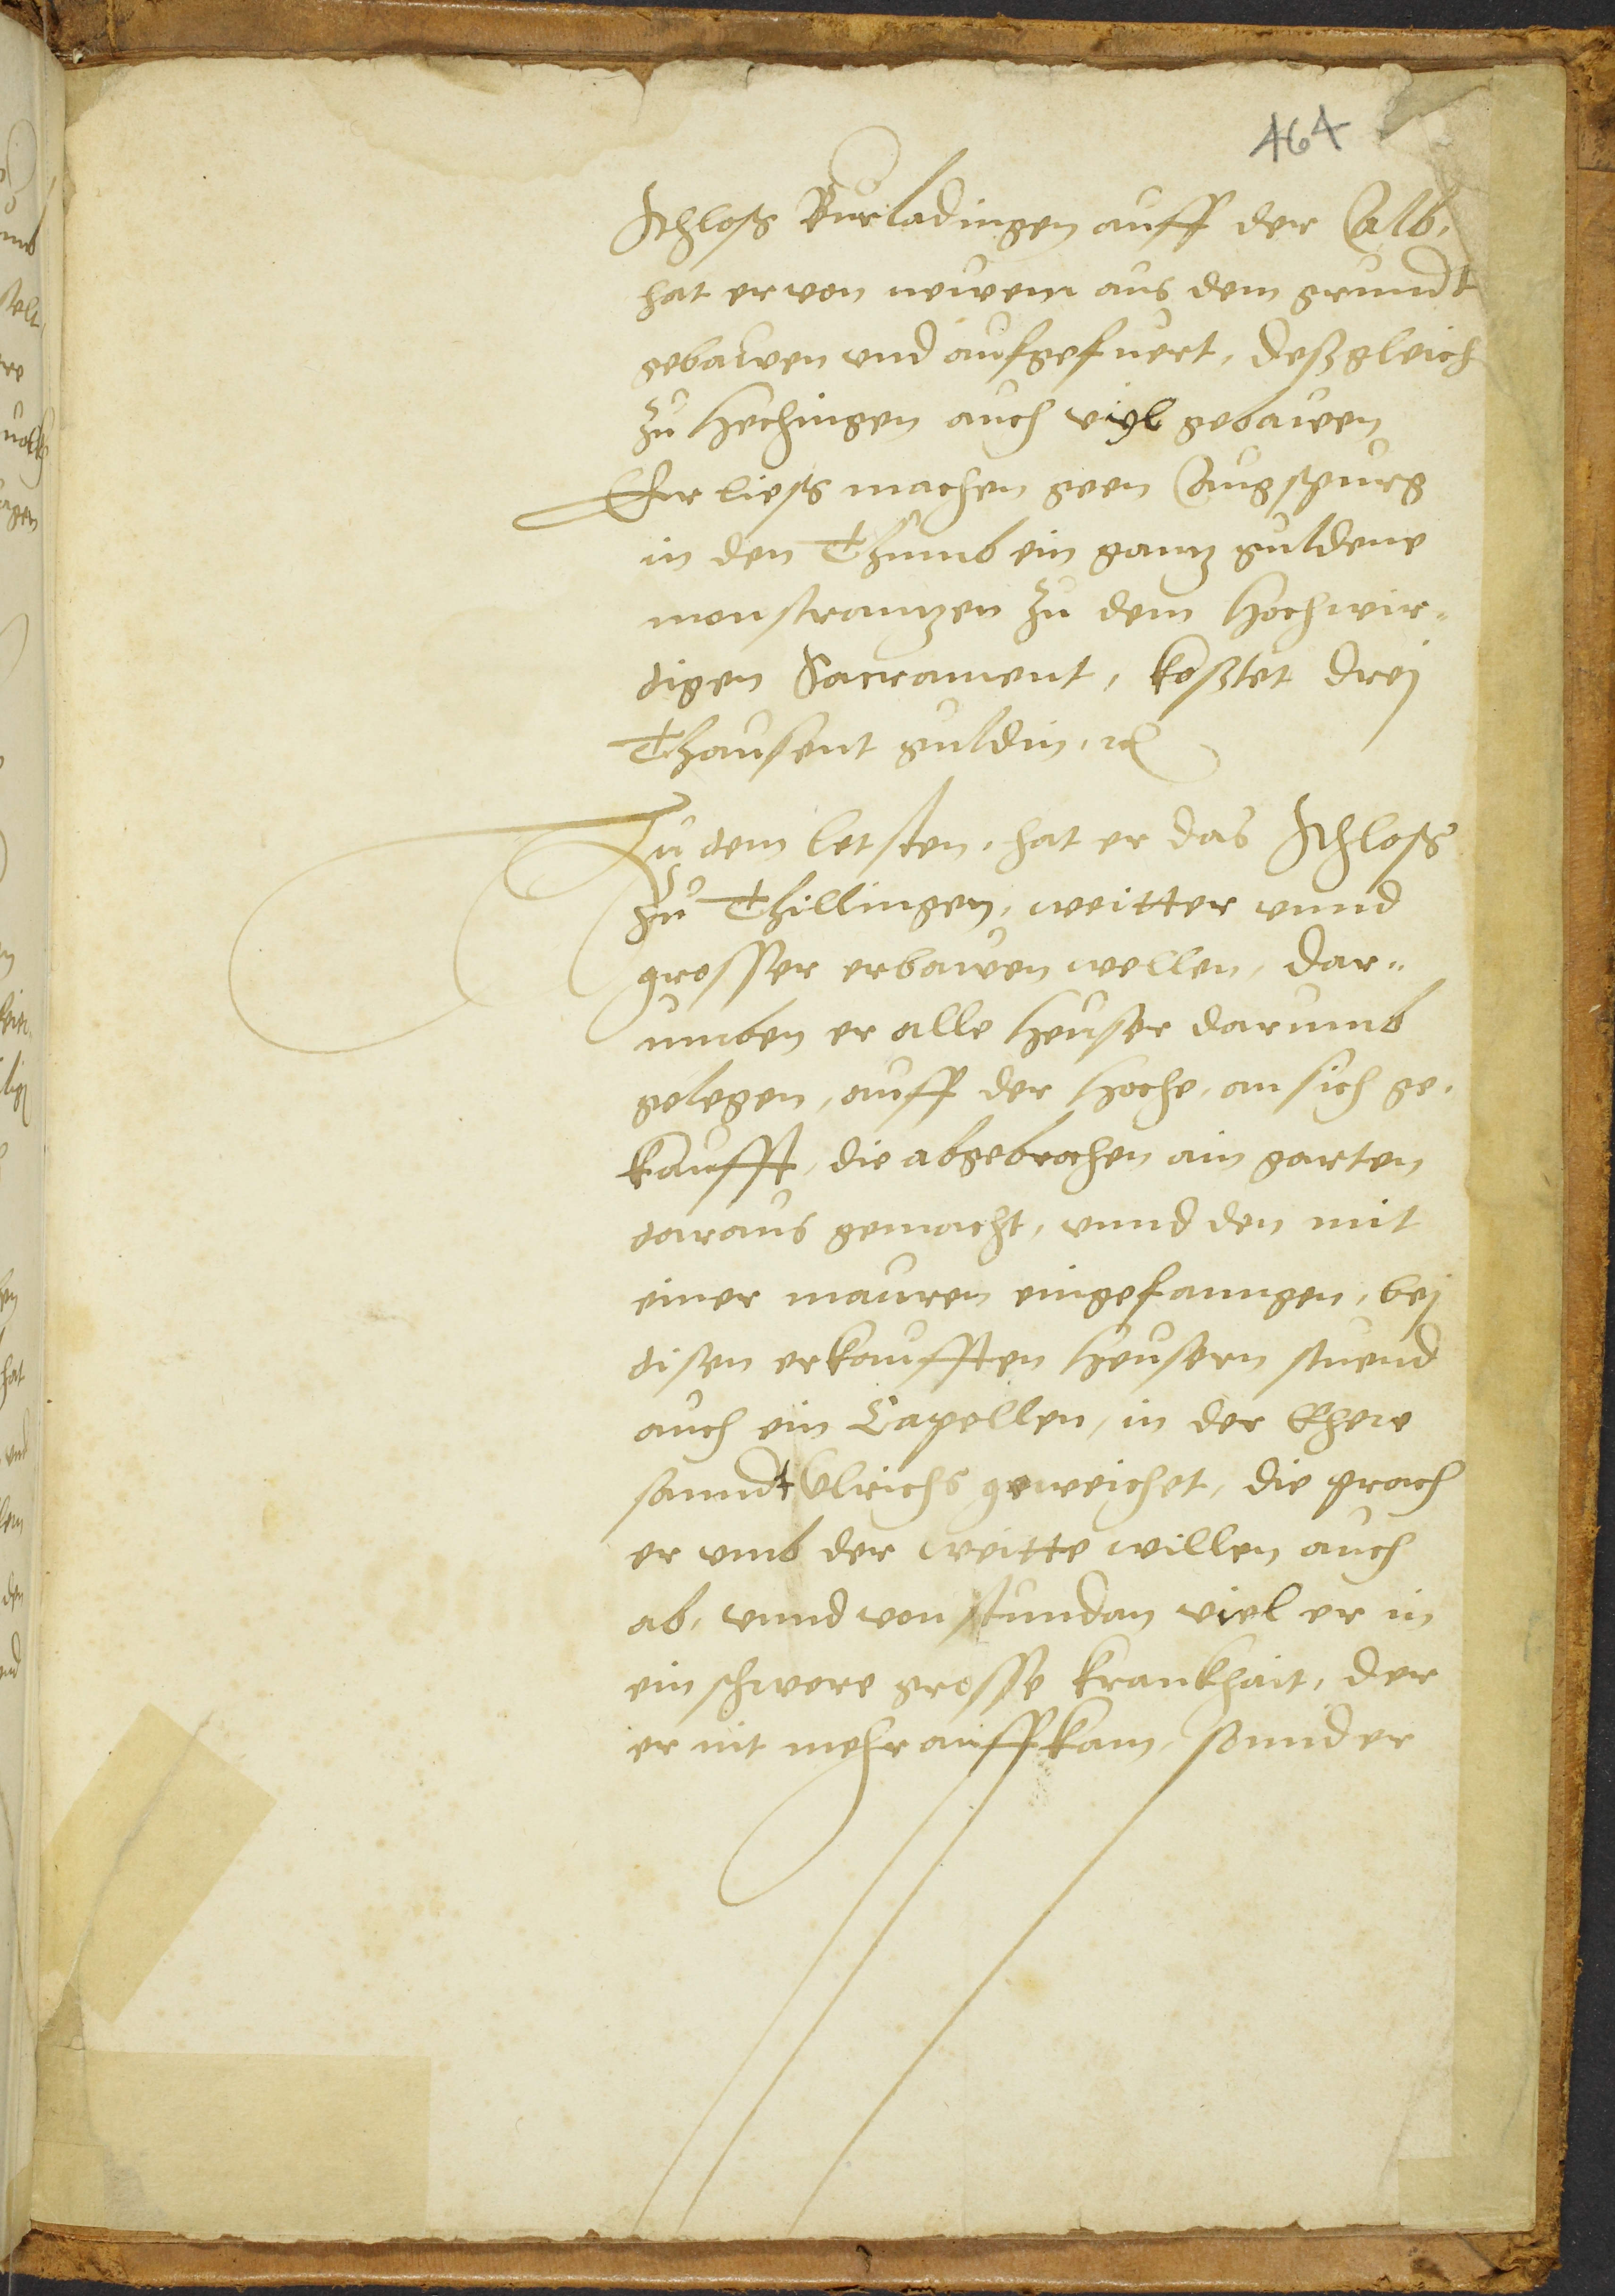 464
Schloß Burladingen auff der Alb,
hat er von newem aus dem grundt
gebawen vnd aufgefuert, deßgleich
zu Hechingen auch viyl gebawen
Er liess machen geen Augspurg
in den Thumb ein gantz guldene
monstrantzen zu dem Hochwir„
digen Sacrament, kostet drej
Thausent guldin, etc
Zu dem letsten, hat er das Schloß
zu Thillingen, weitter vnnd
grosser erbawen wellen, dar„
umben er alle Heuser darumb
gelegen, auff der Hoche, an sich ge„
kaufft, die abgebrochen ain garten
daraus gemacht, vnnd den mit
einer mauren eingefanngen, bej
disen erkaufften Heusern stuend
auch ein Capellen, in der Ehere
sanndt Vlrichs geweichet, die prach
er vmb der weitte willen auch
ab, vnnd von stundan viel er in
ein schwere grosse krankhait, der
er nit mehr auffkam, sonnder